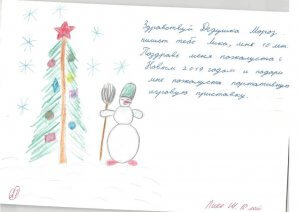 Здравствуй Дедушка Мороз
пишет тебе Лика, мне 10 лет.
Поздравь меня пожалуста с
Новым 2019 годом и подари
мне пожалуста портативную
игровую приставку.
Лика Ш. 10 лет